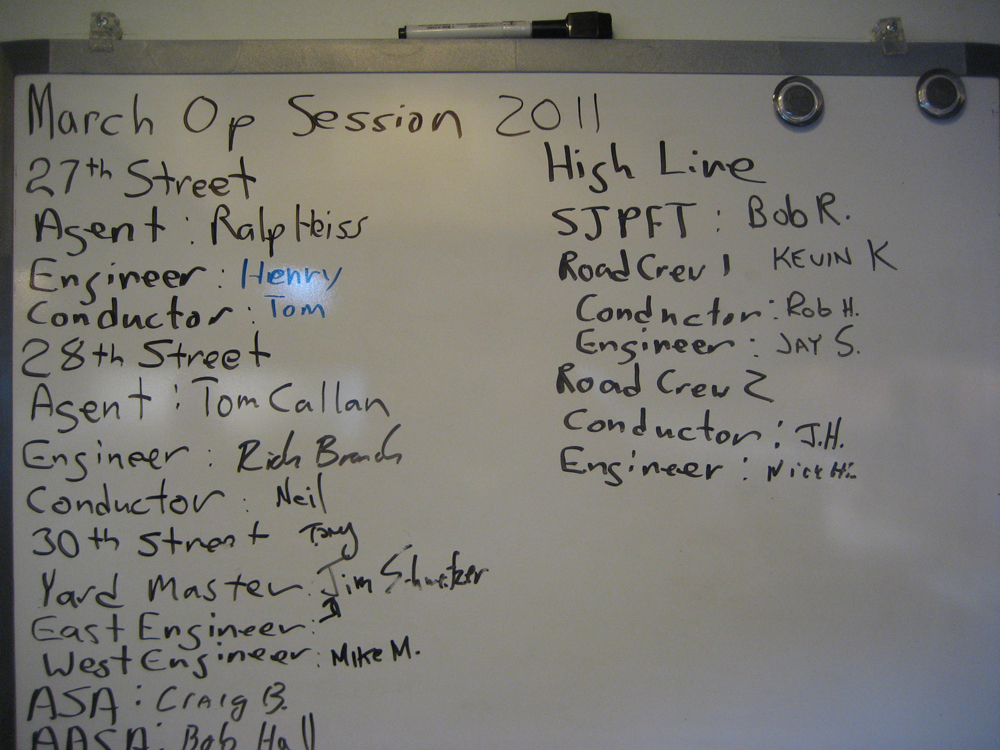 March Op Session 2011
27th Street
Agent : Ralph Heiss
Engineer : Henry
Conductor : Tom
28th Street
Agent : Tom Callan
Engineer : Rich
Conductor : Neil
30th Street Tony
Yard Master : Jim
East Engineer :
West Engineer : MIKE M.
ASA : Craig B.
AASA : Bob Hall
High Line
SJPFT : Bob R.
Road Crew 1 KEVIN K
Conductor : Rob H.
Engineer : JAY S.
Road Crew 2
Conductor : J.H.
Engineer : Nick